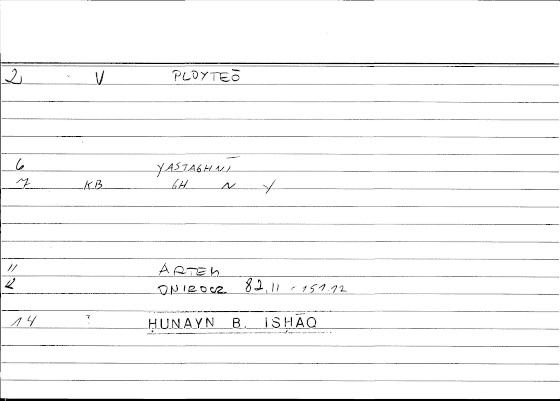 2 V PLOYTEŌ
6 YASTAGHNĪ
7 KB GH N Y
11 ARTEM
12 ONIROCR 82,11 - 151.12
14 ḤUNAYN B. ISḤĀQ